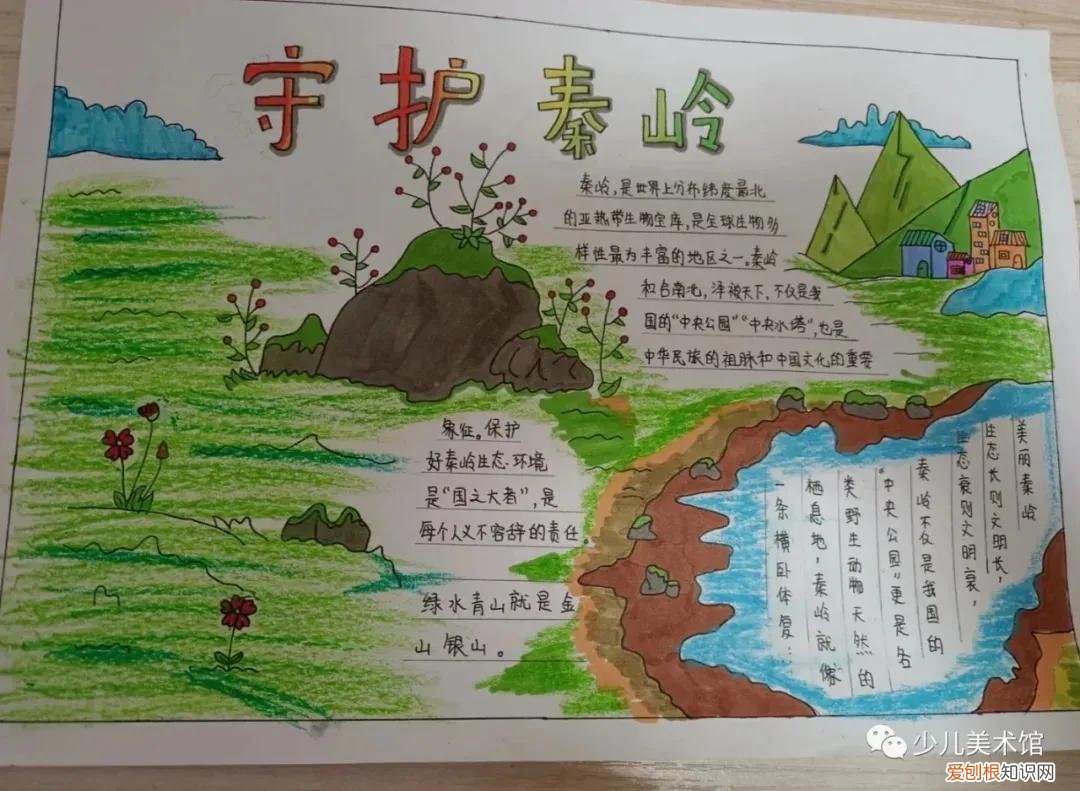 守护秦岭
秦岭,是世界上分布纬度最北
的亚热带生物宝库,是全球生物多
样性最为丰富的地区之一。秦岭
和合南北,泽被天下,不仅是我
国的"中央公园""中央水塔",也是
中华民族的祖脉和中国文化的重要
象征。保护
好秦岭生态环境
是"国之大者",是
每个人义不容辞的责任。
绿水青山就是金
山银山。
美丽秦岭
生态长则文明长,
生态衰则文明衰,
秦岭不仅是我国的
"中央公园"更是各
类野生动物天然的
栖息地,秦岭就像
一条横卧体复:
少儿美术馆
爱刨根知识网